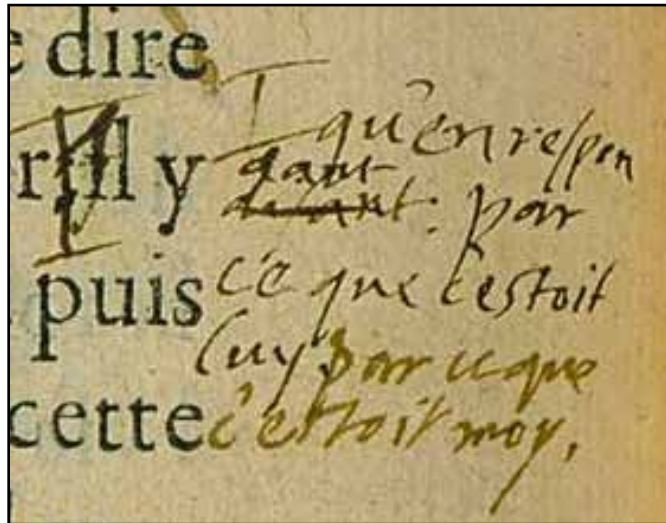 e dire
r Il y
puis
cette
qu'en respon
dant
disant: par
ce que c'estoit
luy: par ce que
c'estoit moy.